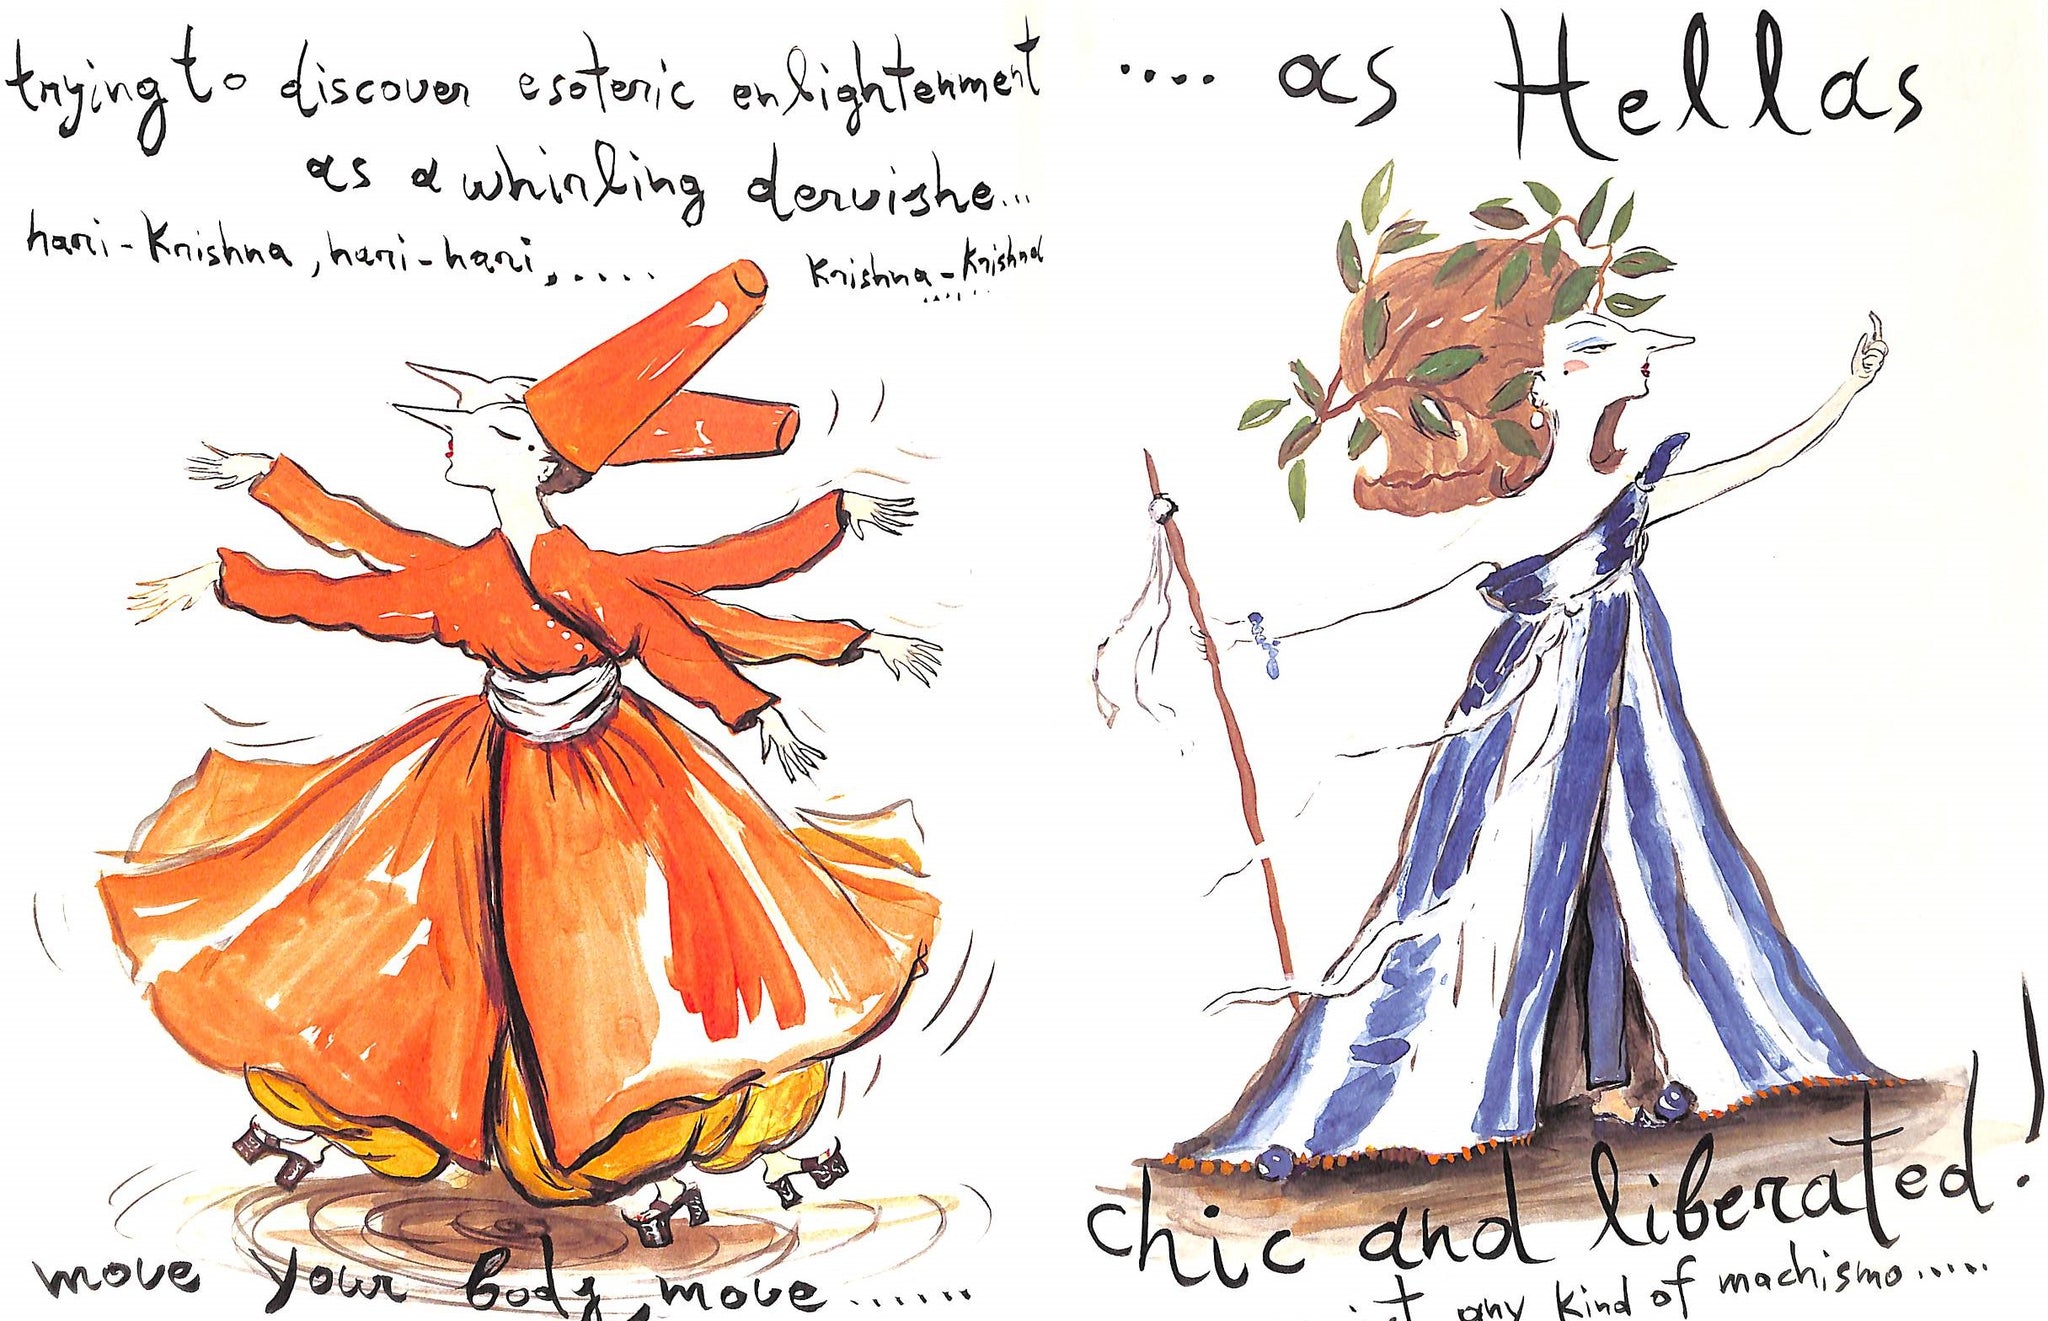 trying to discover esoteric enlightenment
as a whirling dervishe...
hari-Krishna, hari-hari,.....
Krishna-Krishna
......
move your body, move.......
.... as Hellas
chic and liberated!
any kind of machismo.....